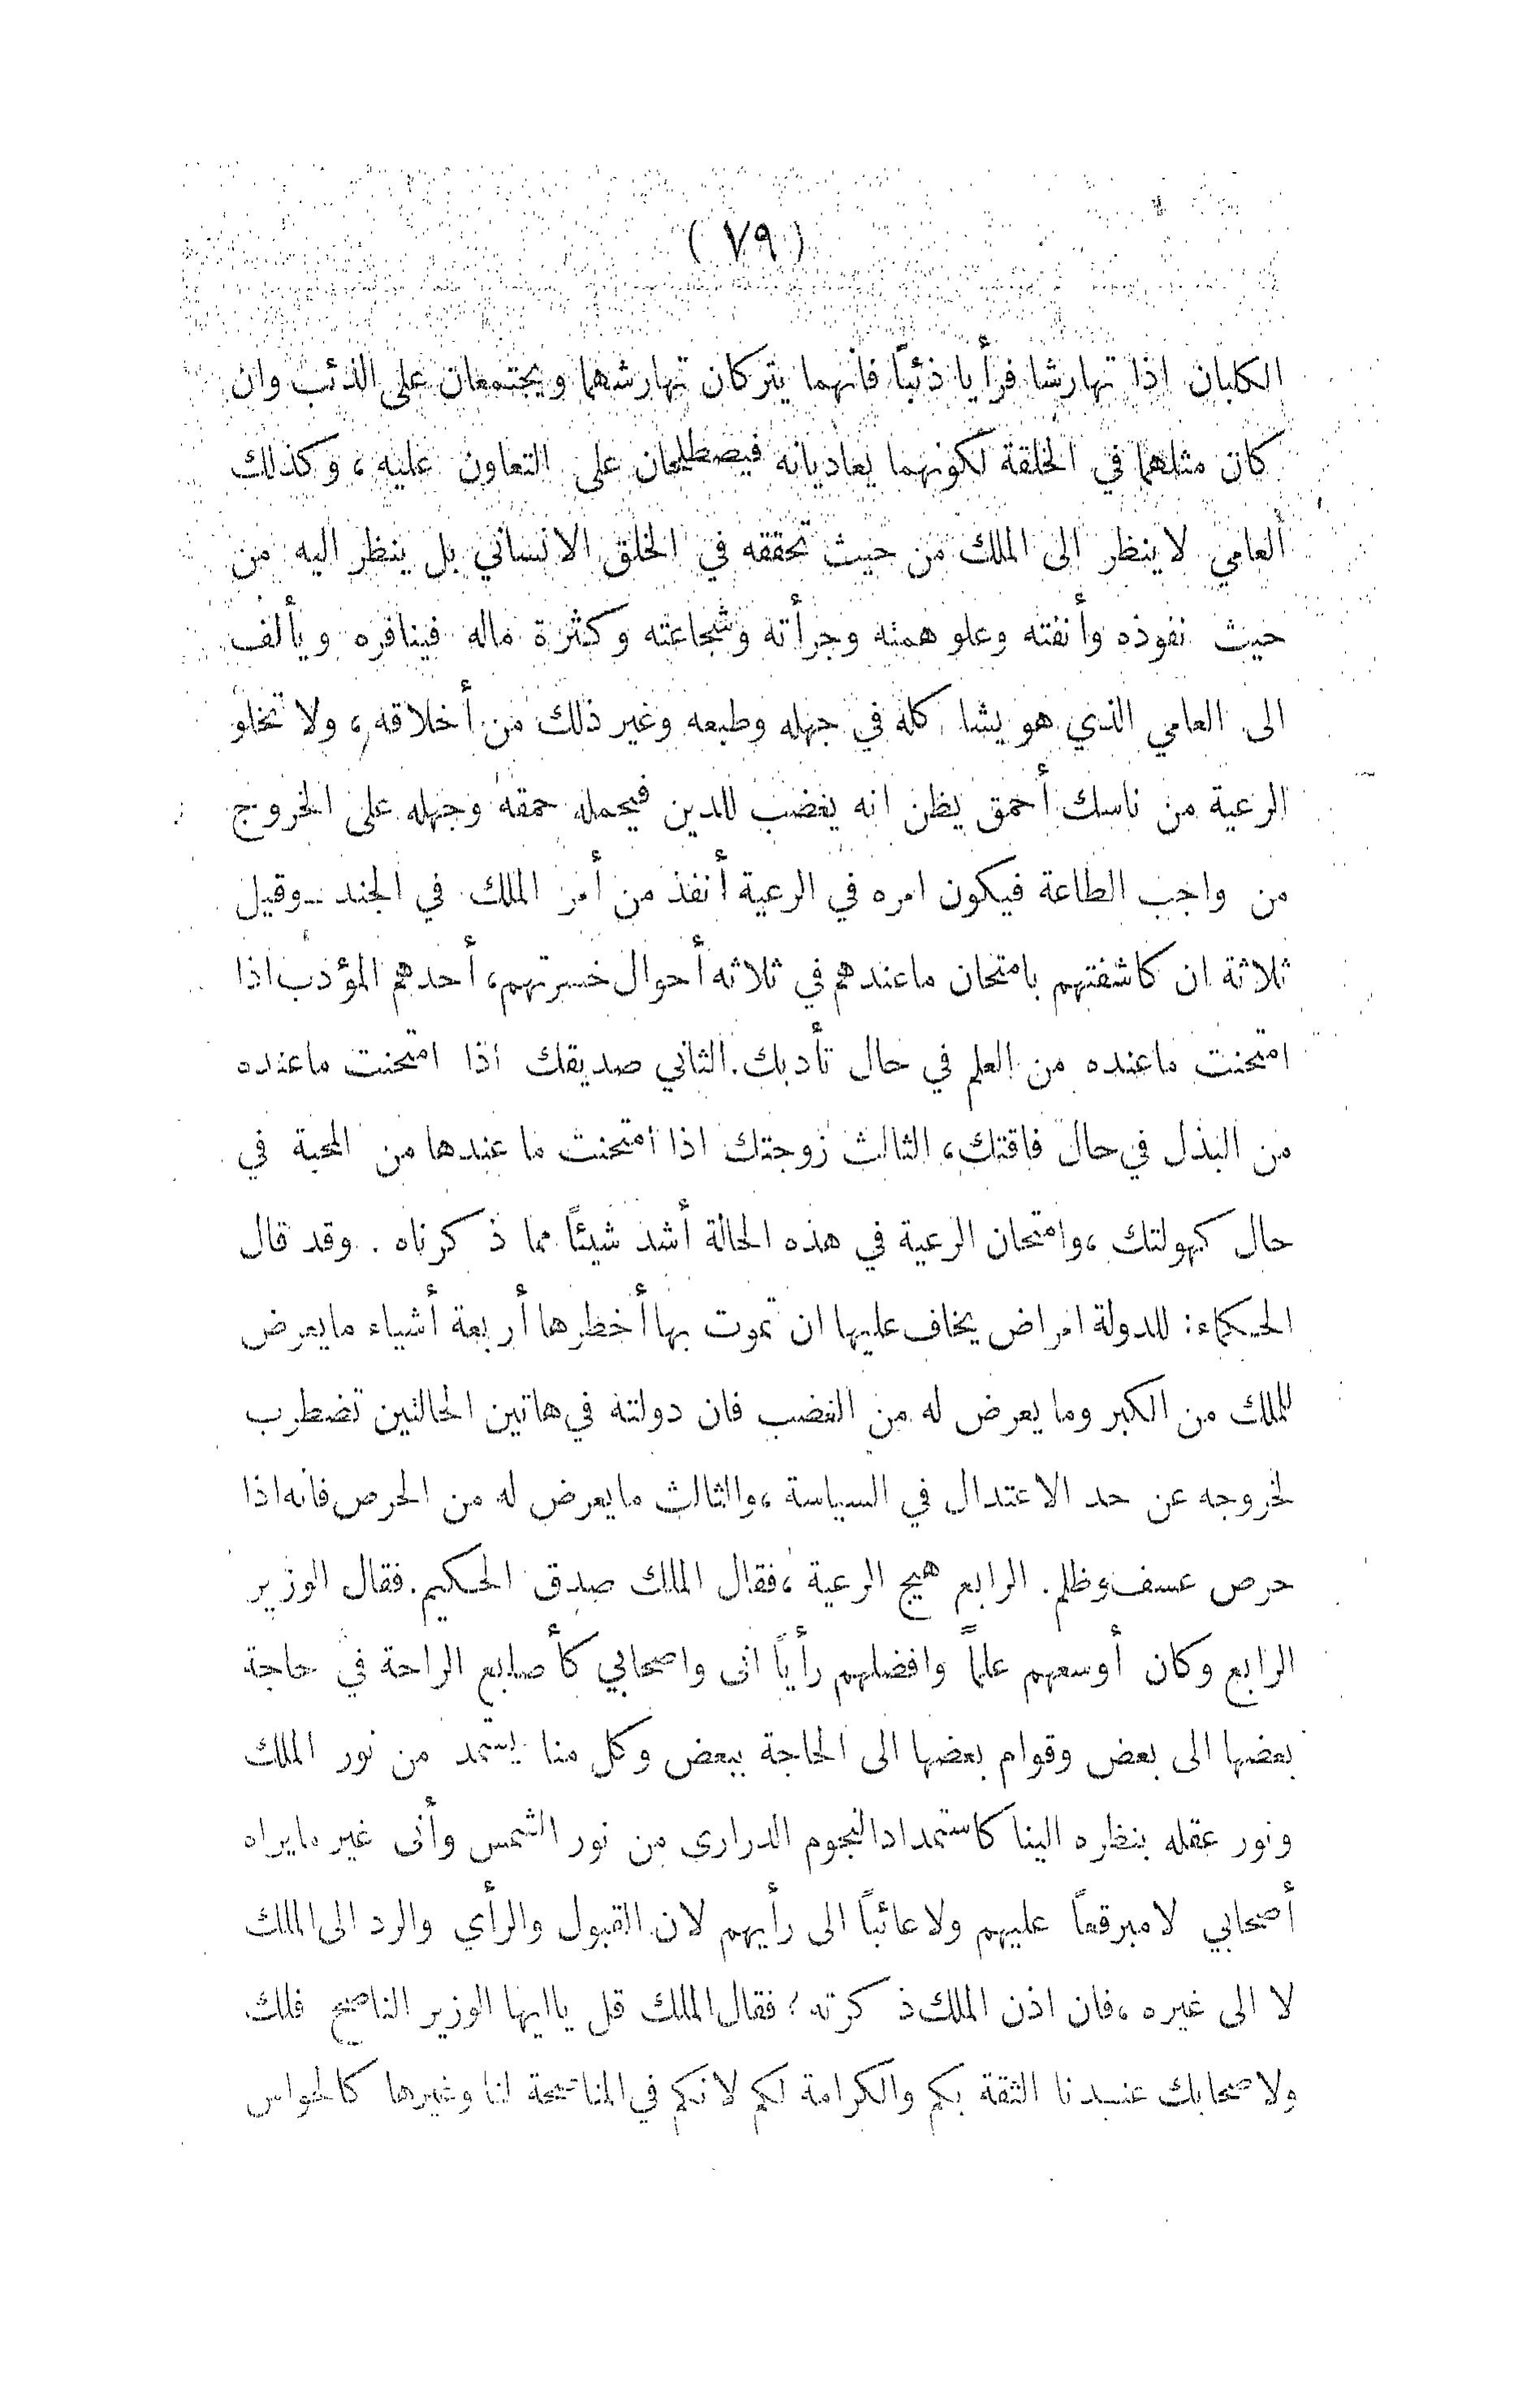 ( ٧٩ )
الكلبان اذا تهارشا فرأيا ذئباً فانهما يتركان تهارشهما ويجتمعان على الذئب وان
كان مثلهما في الخلقة لكونهما يعاديانه فيصطلحان على التعاون عليه ، وكذلك
العامي لا ينظر الى الملك من حيث تحققه في الخلق الانساني بل ينظر اليه من
حيث نفوذه وأنفته وعلو همته وجرأته وشجاعته وكثرة ماله فينافره ويألف
الى العامي الذي هو يشاكله في جهله وطبعه وغير ذلك من أخلاقه ، ولا تخلو
الرعية من ناسك أحمق يظن انه يغضب للدين فيحمله حمقه وجهله على الخروج
من واجب الطاعة فيكون امره في الرعية أنفذ من أمر الملك في الجند ــ وقيل
ثلاثة ان كاشفتهم بامتحان ماعندهم في ثلاثه أحوال خسرتهم، أحدهم المؤدب اذا
امتحنت ماعنده من العلم في حال تأدبك. الثاني صديقك اذا امتحنت ماعنده
من البذل في حال فاقتك، الثالث زوجتك اذا امتحنت ما عندها من المحبة في
حال كهولتك ،وامتحان الرعية في هذه الحالة أشد شيئاً مما ذكرناه . وقد قال
الحكماء: للدولة امراض يخاف عليها ان تموت بها أخطرها أربعة أشياء مايعرض
للملك من الكبر وما يعرض له من الغضب فان دولته في هاتين الحالتين تضطرب
لخروجه عن حد الاعتدال في السياسة ،والثالث مايعرض له من الحرص فانه اذا
حرص عسف وظلم. الرابع هيج الرعية ،فقال الملك صدق الحكيم. فقال الوزير
الرابع وكان أوسعهم علماً وافضلهم رأياً انى واصحابي كأصابع الراحة في حاجة
بعضها الى بعض وقوام بعضها الى الحاجة ببعض وكل منا يستمد من نور الملك
ونور عقله بنظره الينا كاستمداد النجوم الدرارى من نور الشمس وأنى غير مايراه
أصحابي لا مبرقعاً عليهم ولا عائباً الى رأيهم لان القبول والرأي والرد الى الملك
لا الى غيره ،فان اذن الملك ذكرته ؛ فقال الملك قل ياايها الوزير الناصح فلك
ولاصحابك عندنا الثقة بكم والكرامة لكم لانكم في المناصحة لنا وغيرها كالحواس